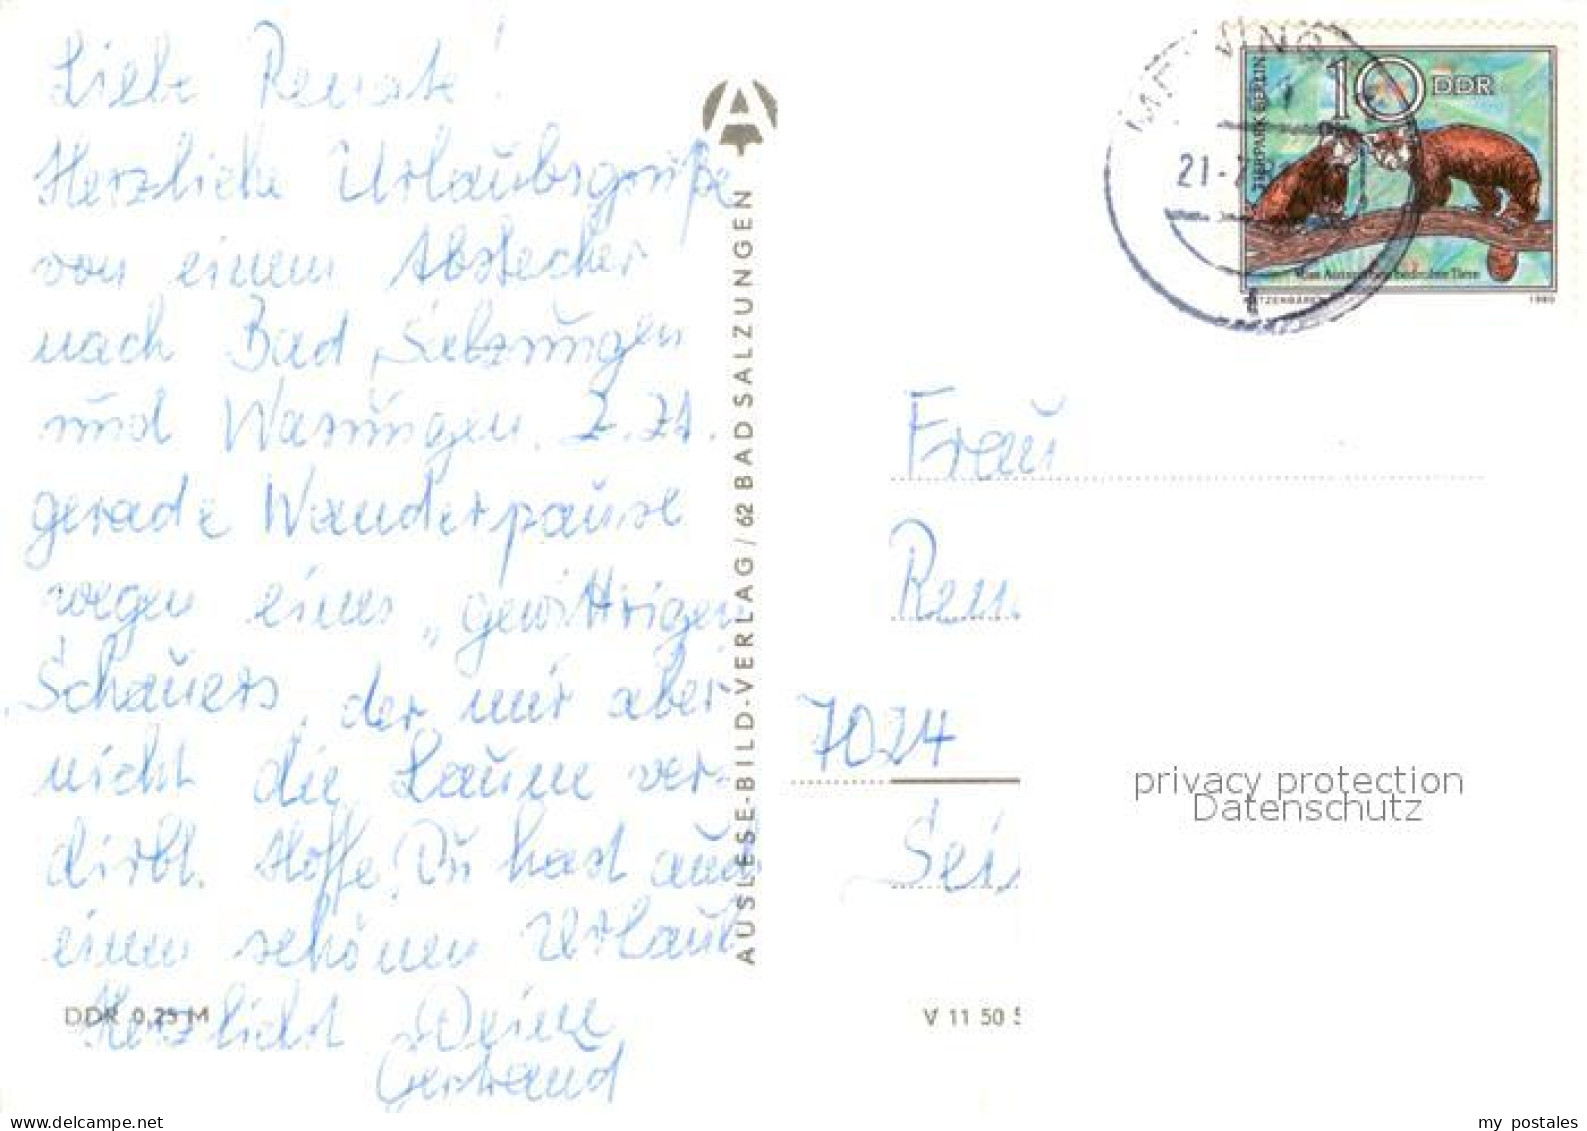 Liebe Renate!
Herzliche Urlaubsgrüße
von einem Abstecher
nach Bad Salzungen
und Wasungen. Z. Zt.
gerade Wanderpause
wegen eines „gewittrigen
Schauers, der mir aber
nicht die Laune ver-
dirbt. Hoffe, Du hast auch
einen schönen Urlaub
Herzlichst Deine
Gertraud
DDR 0,25 M
AUSLESE-BILD-VERLAG / 62 BAD SALZUNGEN
A
21.7
10 DDR
TIERPARK BERLIN
Vom Aussterben bedrohte Tiere
KATZENBÄREN
1980
Frau
Ren
7024
Sei
V 11 50 5
privacy protection
Datenschutz
delcampe.net
my postales